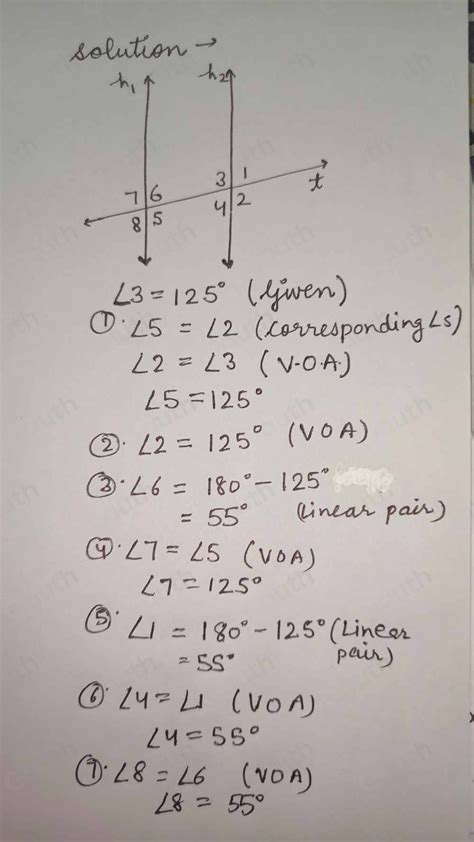 solution →
h₁ h₂
7 6 3 1 t
8 5 4 2
∠3 = 125° (Given)
①. ∠5 = ∠2 (corresponding ∠s)
∠2 = ∠3 (V.O.A.)
∠5 = 125°
②. ∠2 = 125° (VOA)
③. ∠6 = 180° - 125°
= 55° (linear pair)
④. ∠7 = ∠5 (VOA)
∠7 = 125°
⑤. ∠1 = 180° - 125° (Linear
= 55° pair)
⑥. ∠4 = ∠1 (VOA)
∠4 = 55°
⑦. ∠8 = ∠6 (VOA)
∠8 = 55°